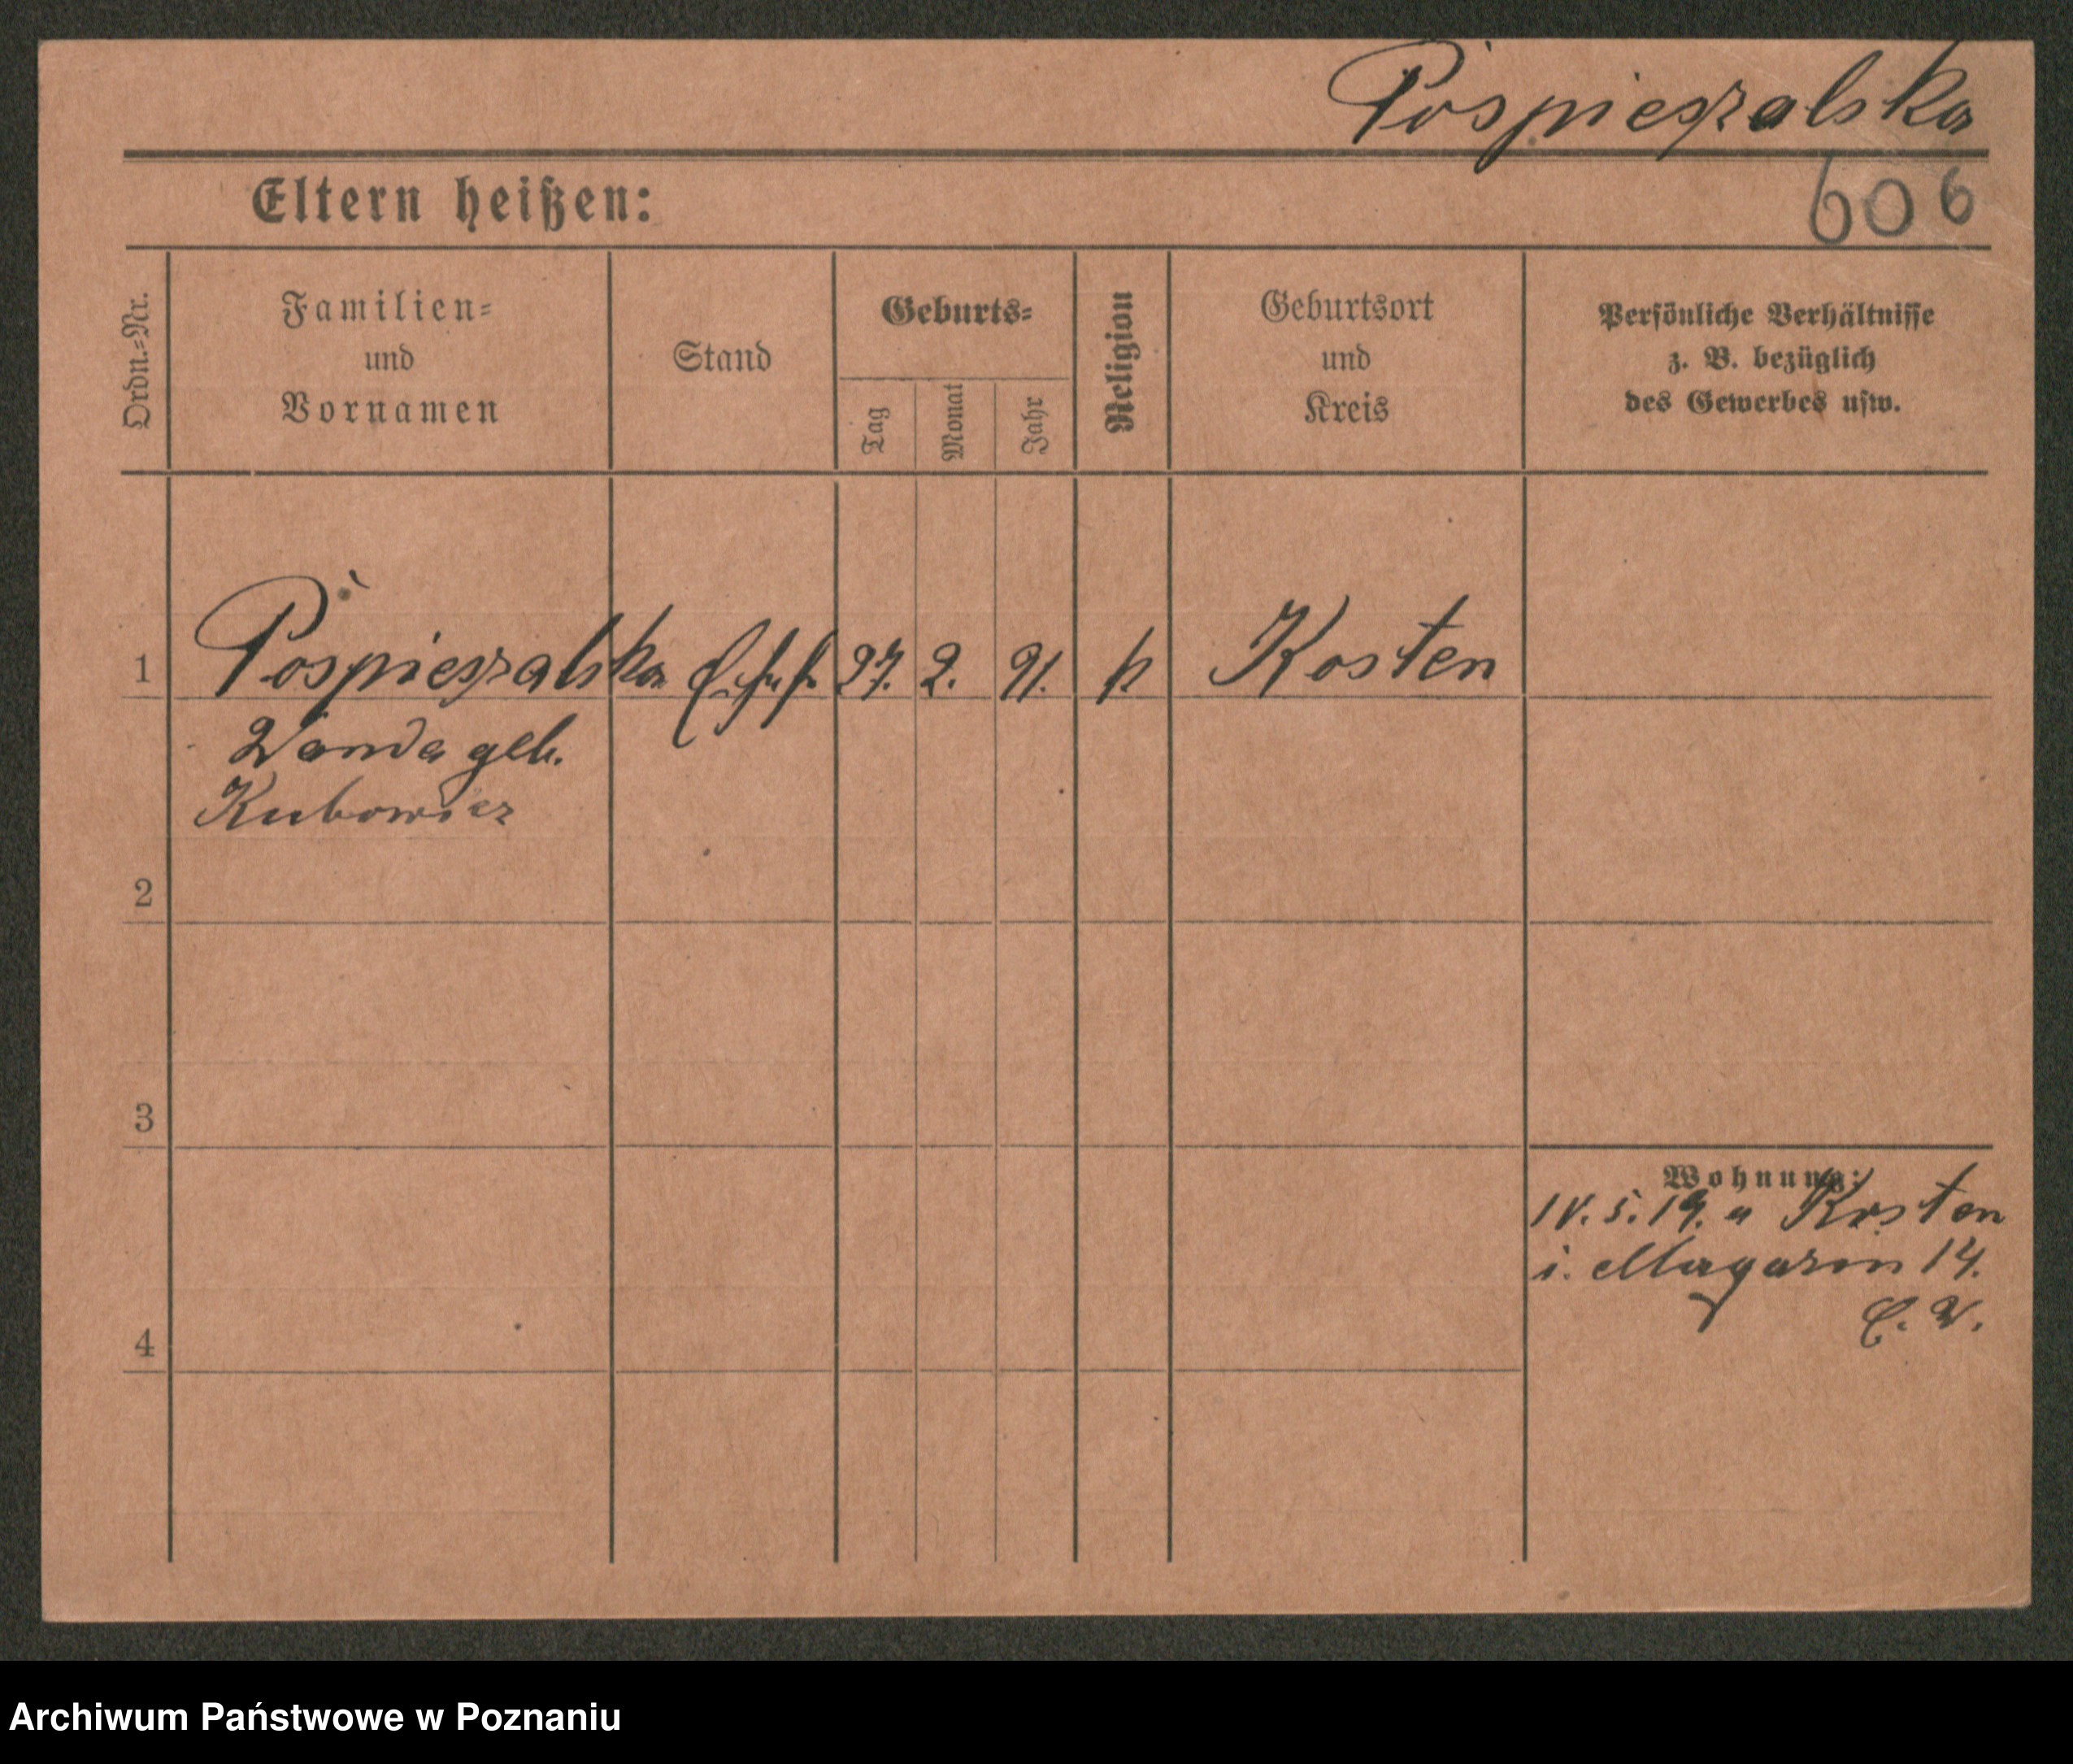 Pospieszalska
606
Eltern heißen:
Ordn.-Nr.
Familien-
und
Vornamen
Stand
Geburts-
Tag
Monat
Jahr
Religion
Geburtsort
und
Kreis
Persönliche Verhältnisse
z. B. bezüglich
des Gewerbes usw.
1 Pospieszalska Ehefr. 27. 2. 91. k Kosten
Wanda geb.
Kubowicz
2
3
4
Wohnung:
5. 19. a Kosten
i. Magazin 14.
E. W.
Archiwum Państwowe w Poznaniu